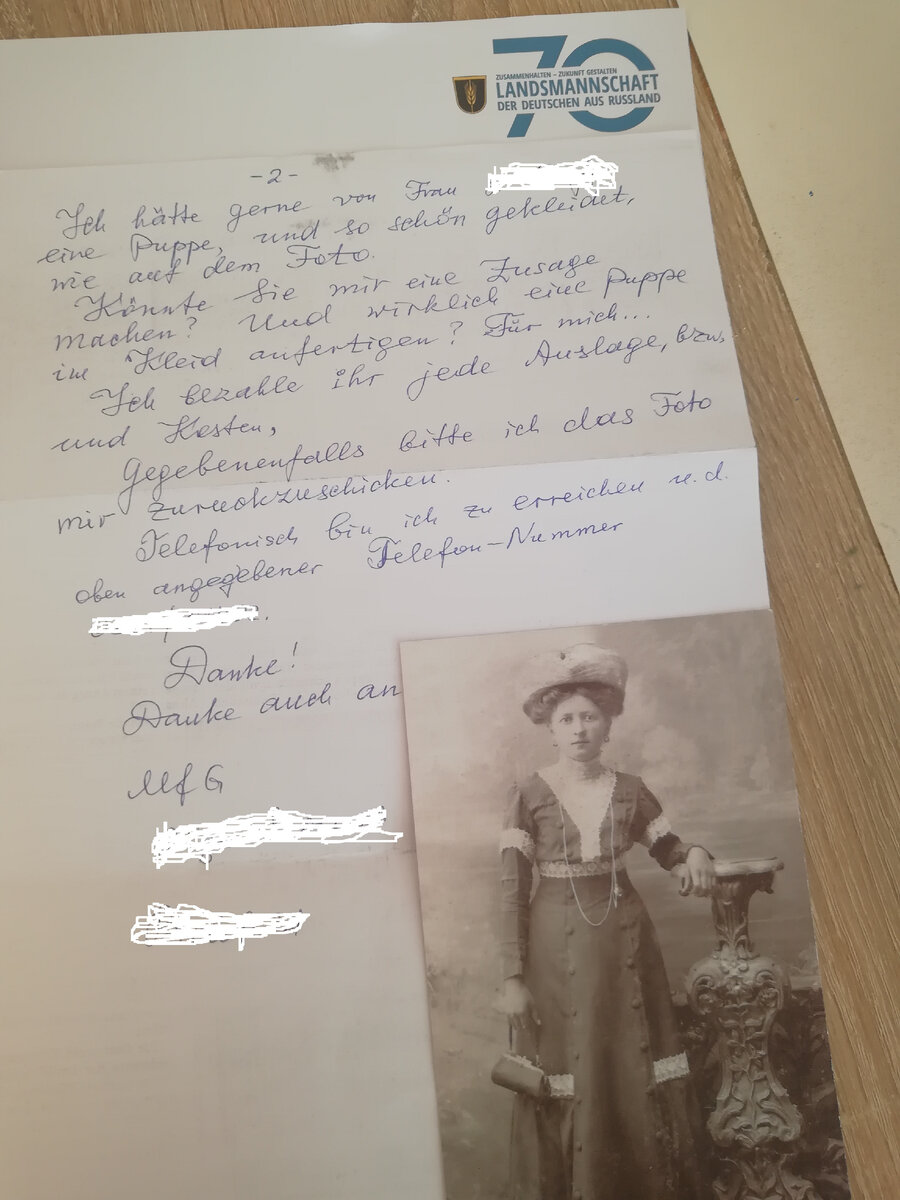 70
ZUSAMMENHALTEN – ZUKUNFT GESTALTEN
LANDSMANNSCHAFT
DER DEUTSCHEN AUS RUSSLAND
-2-
Ich hätte gerne von Frau
eine Puppe, und so schön gekleidet,
wie auf dem Foto.
Könnte Sie mir eine Zusage
machen? Und wirklich eine Puppe
im Kleid anfertigen? Für mich...
Ich bezahle ihr jede Auslage, bzw.
und Kosten,
Gegebenenfalls bitte ich das Foto
mir zurückzuschicken.
Telefonisch bin ich zu erreichen u. d.
oben angegebener Telefon-Nummer
Danke!
Danke auch an
MfG